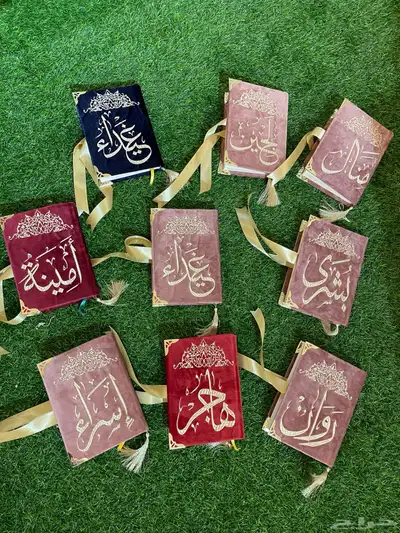 غيداء
لجين
منال
أمينة
غيداء
بشرى
إسراء
هاجر
روان
حراج